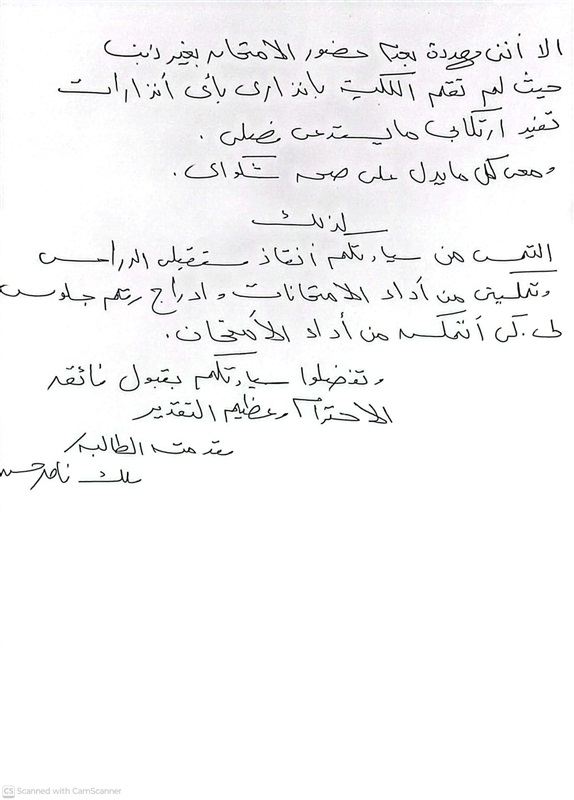 الا أننى مهددة بعدم حضور الامتحان بغير ذنب
حيث لم تقم الكلية بانذارى بأى أنذارات
تفيد ارتكابى ما يستدعى فصلى .
ومعى كل مايدل على صحه شكواى .
لذلك
التمس من سيادتكم أنقاذ مستقبلى الدراسى
وتمكينى من أداء الامتحانات وادراج رقم جلوس
لى .كى أتمكن من أداء الأمتحان .
وتفضلوا سيادتكم بقبول فائقه
الاحترام وعظيم التقدير
مقدمته الطالبه/
ملك ناصر
CS Scanned with CamScanner